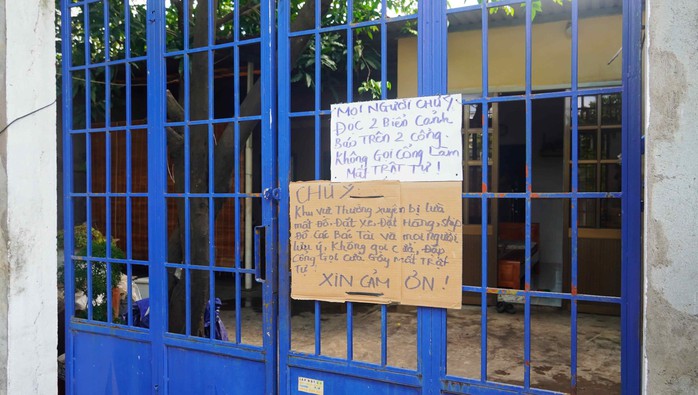 MỌI NGƯỜI CHÚ Ý
ĐỌC 2 BiỂN CẢNH
BÁO TRÊN 2 CỔNG
KHÔNG GỌI CỔNG LÀM
MẤT TRẬT TỰ !
CHÚ Ý
Khu vực Thường xuyên bị lừa
mất Đồ. Đặt Xe, Đặt Hàng, ship
Đồ Các Bác Tài và mọi người
lưu ý, Không gọi Đập
Cổng Gọi Cửa Gây Mất Trật
Tự
XIN CẢM ƠN !